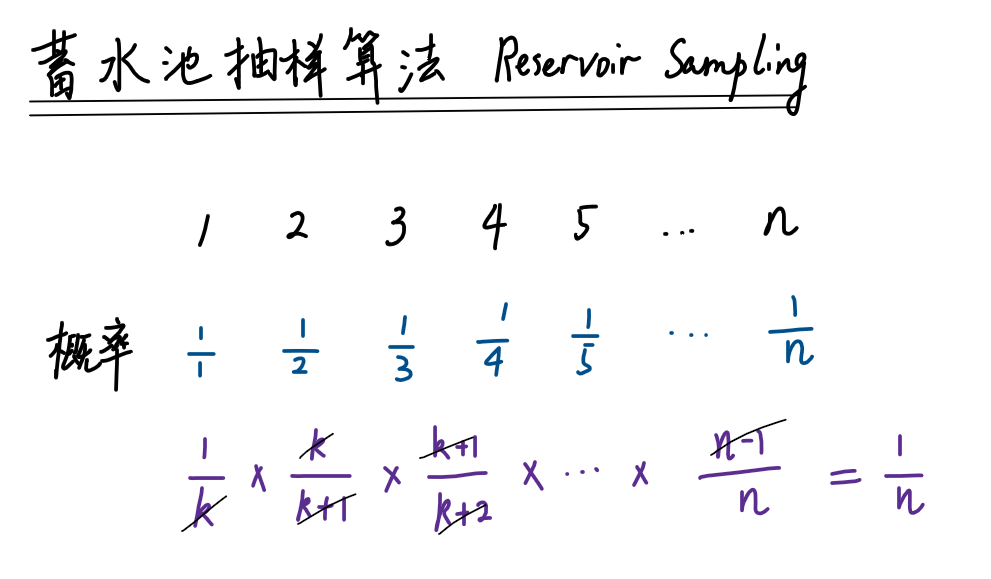 蓄水池抽样算法 Reservoir Sampling
1 2 3 4 5 ... n
概率 1/1 1/2 1/3 1/4 1/5 ... 1/n
1/k × k/k+1 × k+1/k+2 × ... × n-1/n = 1/n